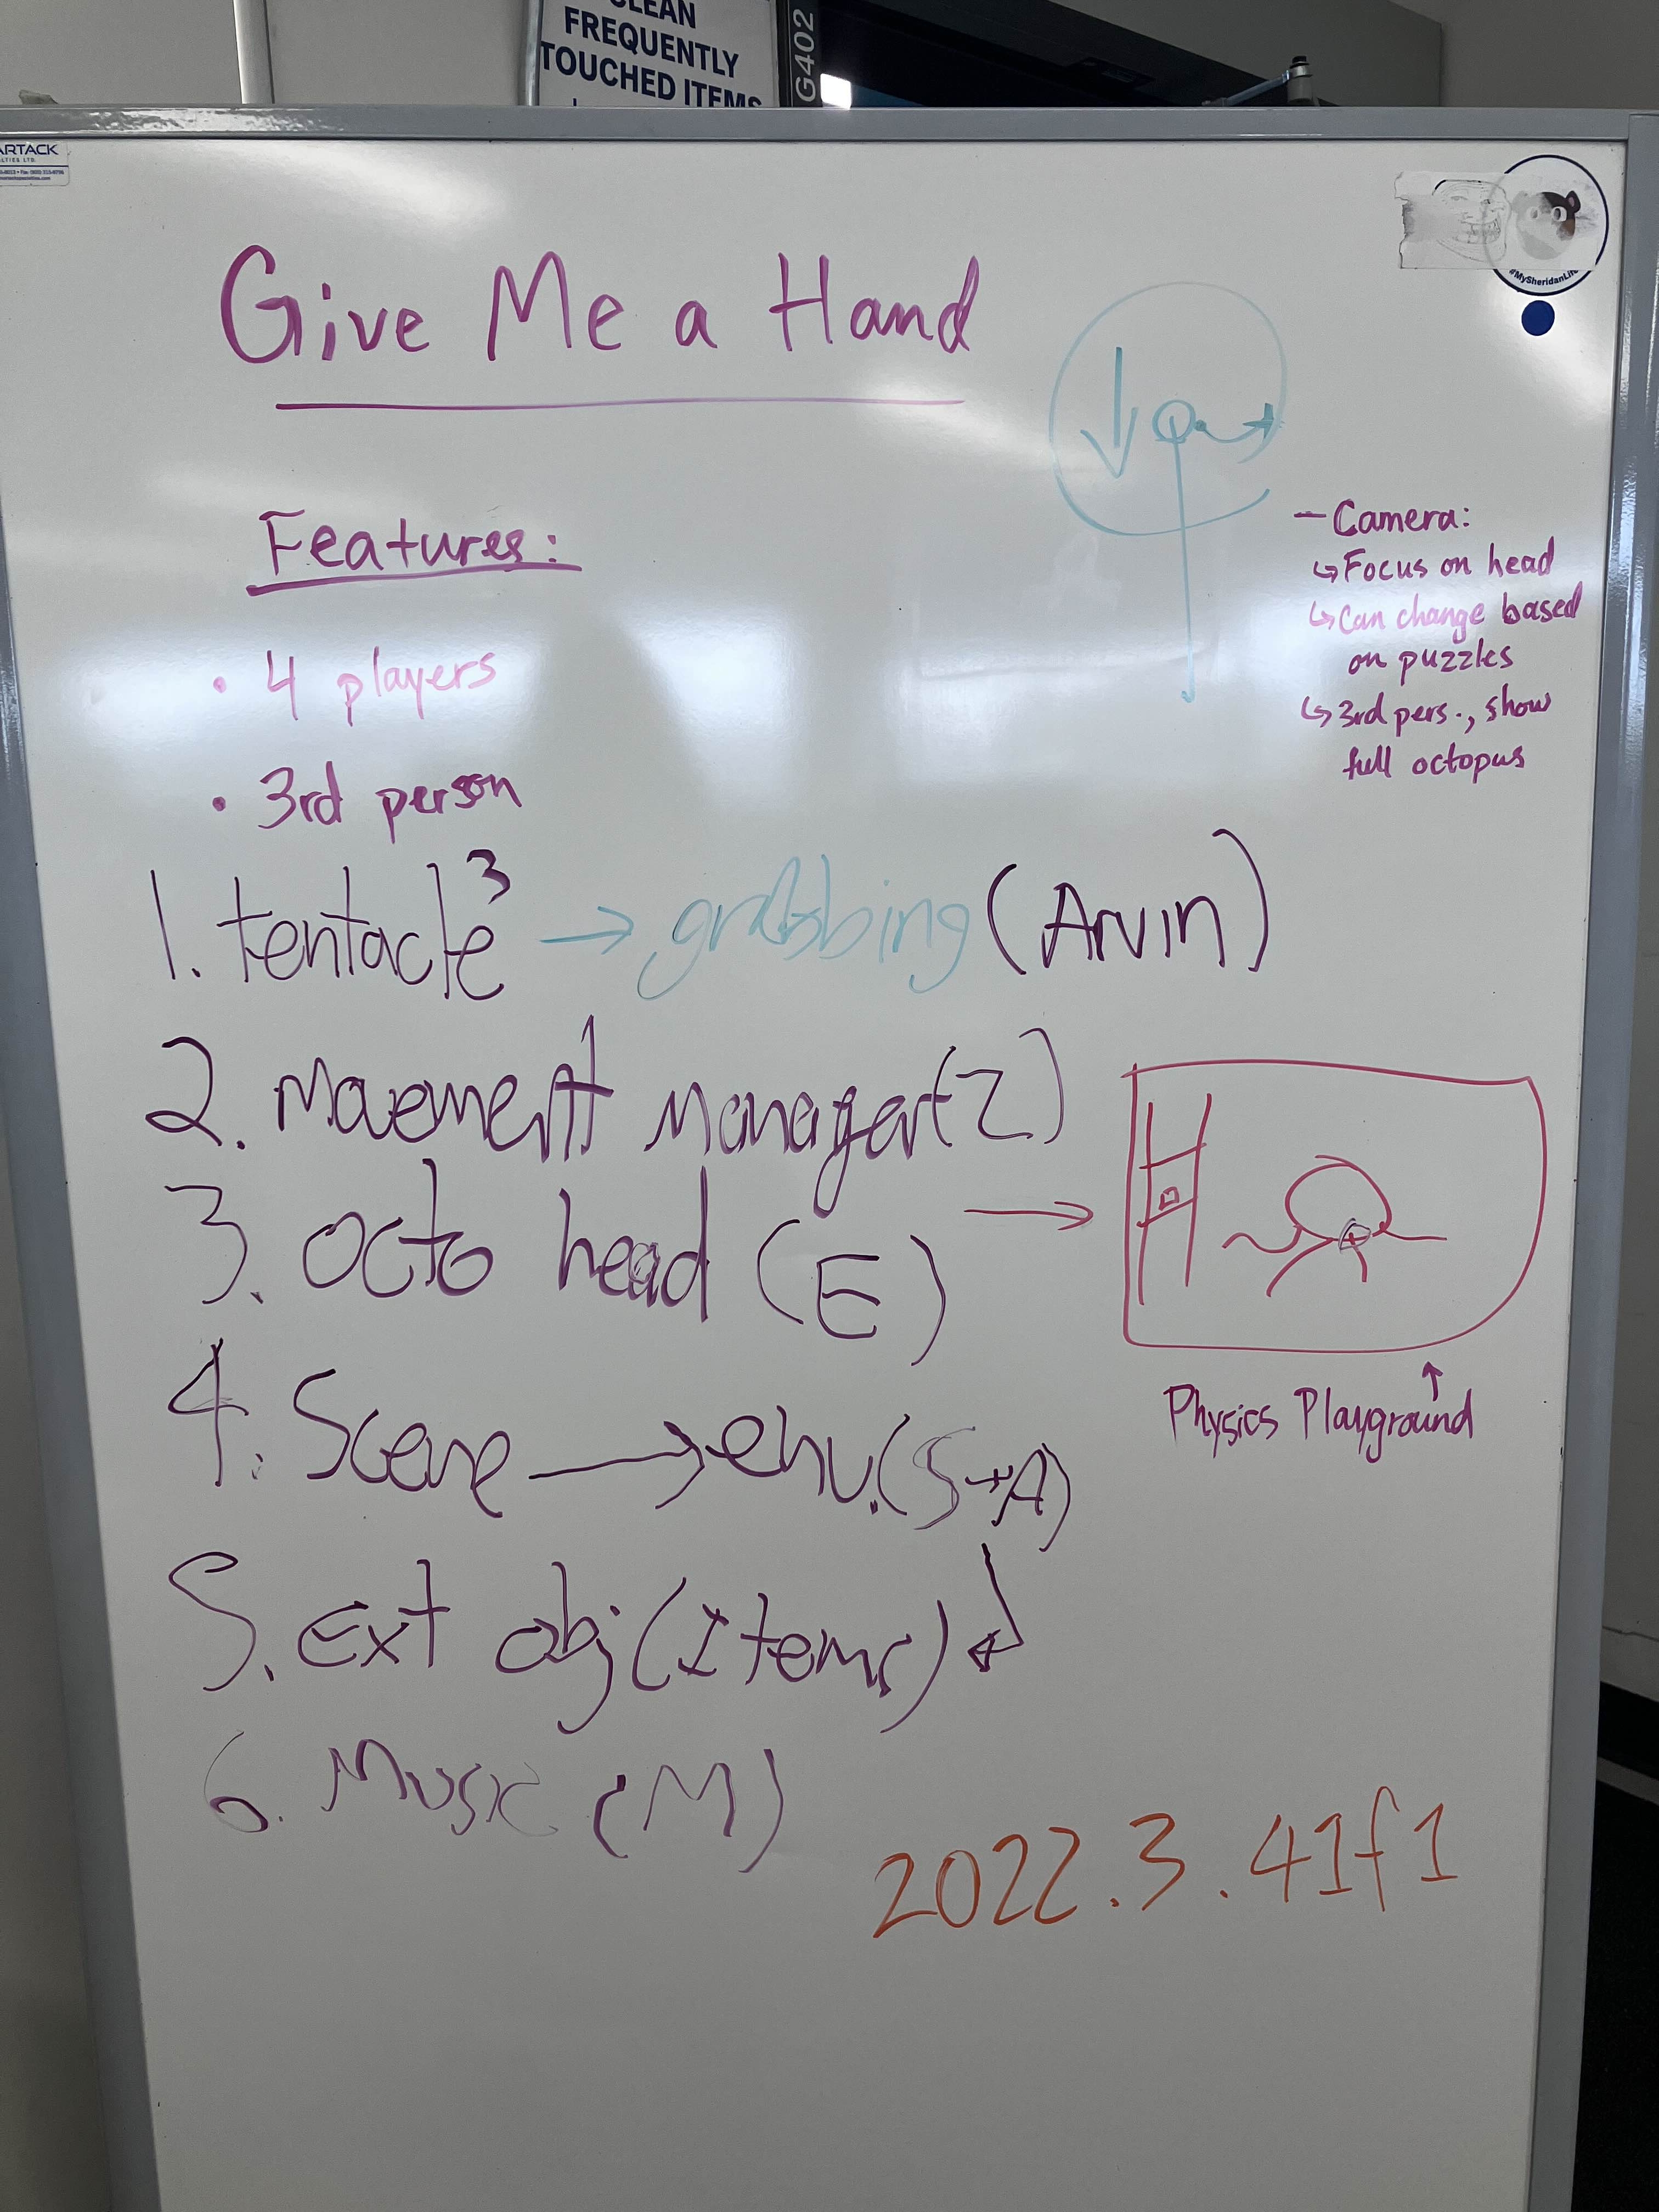 CLEAN
FREQUENTLY
TOUCHED ITEMS
G402
ARTACK
#MySheridanLife
Give Me a Hand
Features:
• 4 players
• 3rd person
– Camera:
↳ Focus on head
↳ Can change based
on puzzles
↳ 3rd pers., show
full octopus
1. tentacle³ → grabbing (Arvin)
2. Movement Manager (Z)
3. Octo head (E) →
4. Scene → env. (S→A)
Physics Playground
5. Ext obj (Items)
6. Music (M)
2022.3.41f1